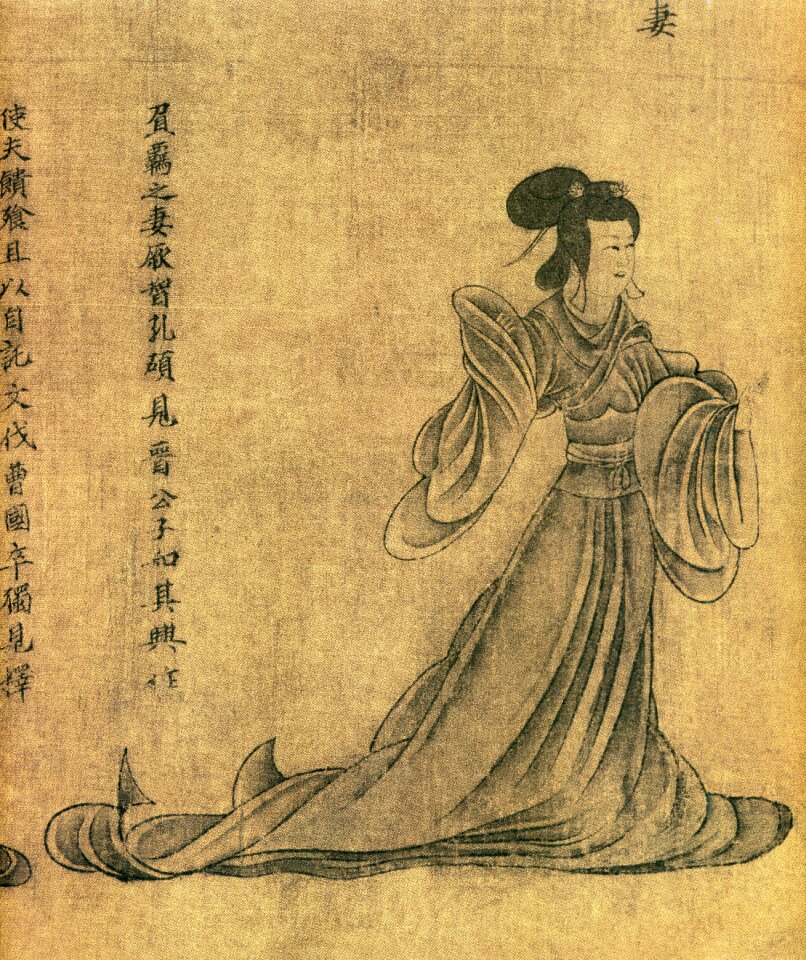 妻
負羈之妻厥智孔碩見晉公子知其興作
使夫饋飱且以自託文伐曹國卒獨見釋